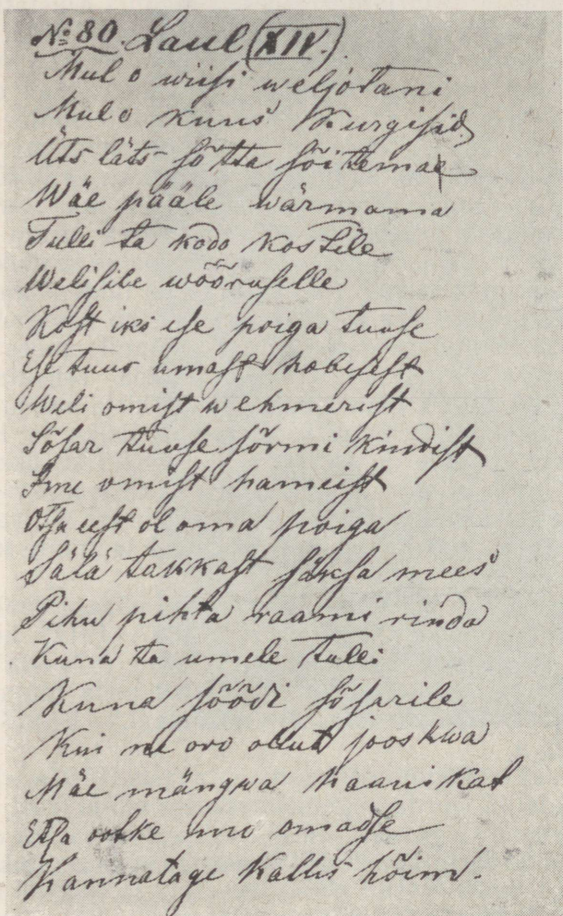 № 80. Laul (XIV.)
Mul o wiisi weljotani
Mul o kuus kurgisid,
Üts läts sõtta sõitemae
Wäe pääle wärmama
Tulli ta kodo kostile
Welisile wõõruselle
Kost iks ese poiga tunse
Ese tuns umast habesest
Weli omist wehmerist
Sõsar tunse sõrmi kindist
Ime omist hameist
Otsa eest ol oma poiga
Sälä takkast säksa mees
Pihu pihta raami rinda
Kuna ta umele tulli
Kuna söödi sõsarile
Kui ne oro ollut jooskwa
Mäe mängwa haanikat
Etsa ootke imo omadse
Kannatage kallis hõim.